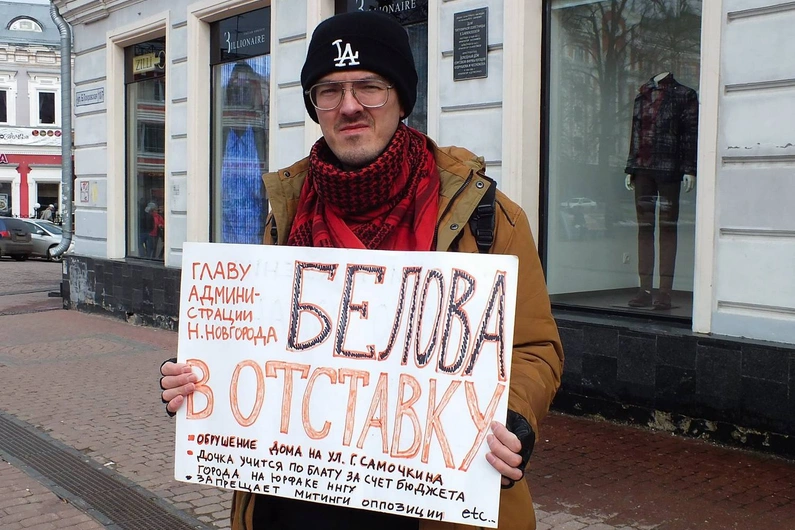 BILLIONAIRE
BILLIONAIRE
ZILLI
LA
ГЛАВУ
АДМИНИ-
СТРАЦИИ
Н.НОВГОРОДА
БЕЛОВА
В ОТСТАВКУ
ОБРУШЕНИЕ ДОМА НА УЛ. Г. САМОЧКИНА
ДОЧКА УЧИТСЯ ПО БЛАТУ ЗА СЧЕТ БЮДЖЕТА
ГОРОДА НА ЮРФАКЕ ННГУ
ЗАПРЕЩАЕТ МИТИНГИ ОППОЗИЦИИ etc...